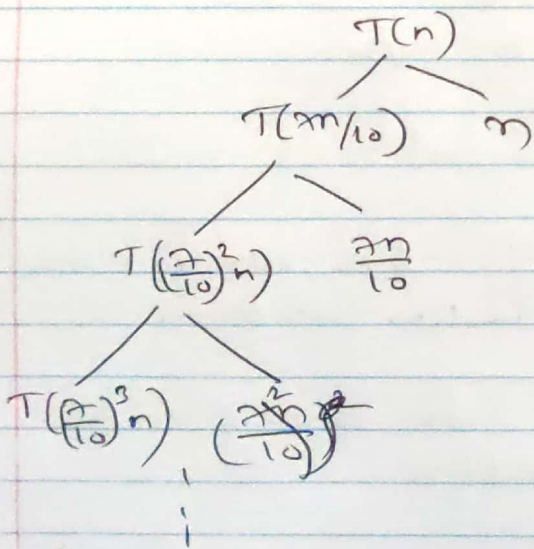 T(n)
T(7n/10) n
T((7/10)²n) 7n/10
T((7/10)³n) (7²n/10)